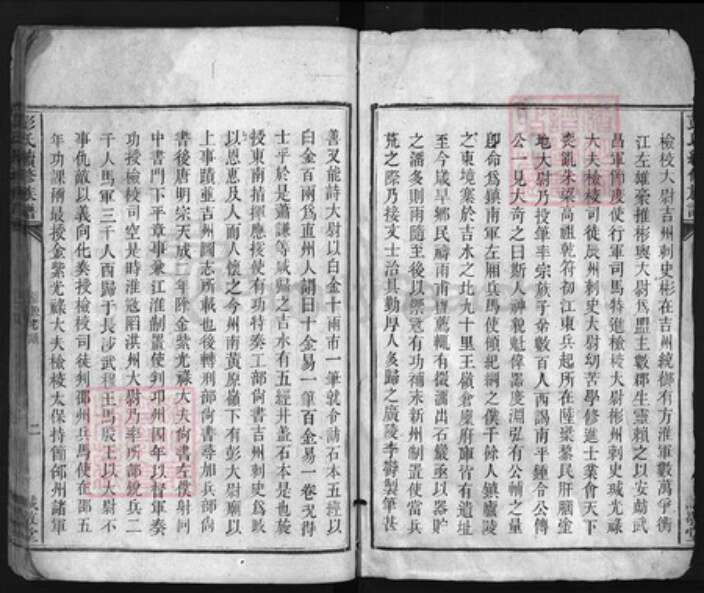 檢校大尉吉州刺史彬在吉州統御有方淮軍數萬爭衡
江左雄豪推彬與大尉為盟主數郡生靈賴之以安勛武
昌軍節度使行軍司馬特進檢校大尉彬州刺史瑊光祿
大夫檢校司徒辰州刺史大尉幼苦學修進士業會天下
喪亂朱梁高祖乾符初江東兵起所在陸梁黎民肝腦塗
地大尉乃投筆率宗族子弟數百人西謁南平鍾令公傳
公一見大奇之曰斯人神貌魁偉器度淵弘有公輔之量
即命為鎮南軍左厢兵馬使領紀綱之僕千餘人鎮廬陵
之東境寨於吉水之北九十里王嶺倉廩府庫皆有遺址
至今歲旱鄉民禱雨南廬薦輒有微瀟出石巖丞以器貯
之潘多則雨隨至後以禦寇有功補充新州制置使當兵
荒之際乃接文士治具勤厚人多歸之廣陵李壽製筆甚
善又能詩大尉以白金十兩市一筆就令訪石本五經以
白金百兩為直州人謂曰十金易一筆百金易一卷況得
士乎於是蕭謙等咸歸之吉水有五經井蓋石本是也旋
授東南招揮應援使有功特奏工部尙書吉州刺史為政
以恩惠及人而人懷之今州南黃原嶺下有彭大尉廟以
上事蹟並吉州圖志所載也後轉刑部尙書尋加兵部尙
書後唐明宗天成二年除金紫光祿大夫尙書左僕射同
中書門下平章事兼江淮制置使判邛州四年以督軍奏
功授檢校司空是時淮寇陷洪州大尉乃率所部銳兵二
千人馬軍三千人西歸于長沙武穆王馬殷王以大尉不
事仇敵以義向化奏授檢校司徒判郡州兵馬使在郡五
年功課隋最授金紫光祿大夫檢校太保持節郃州諸軍
彭氏續修族譜
二